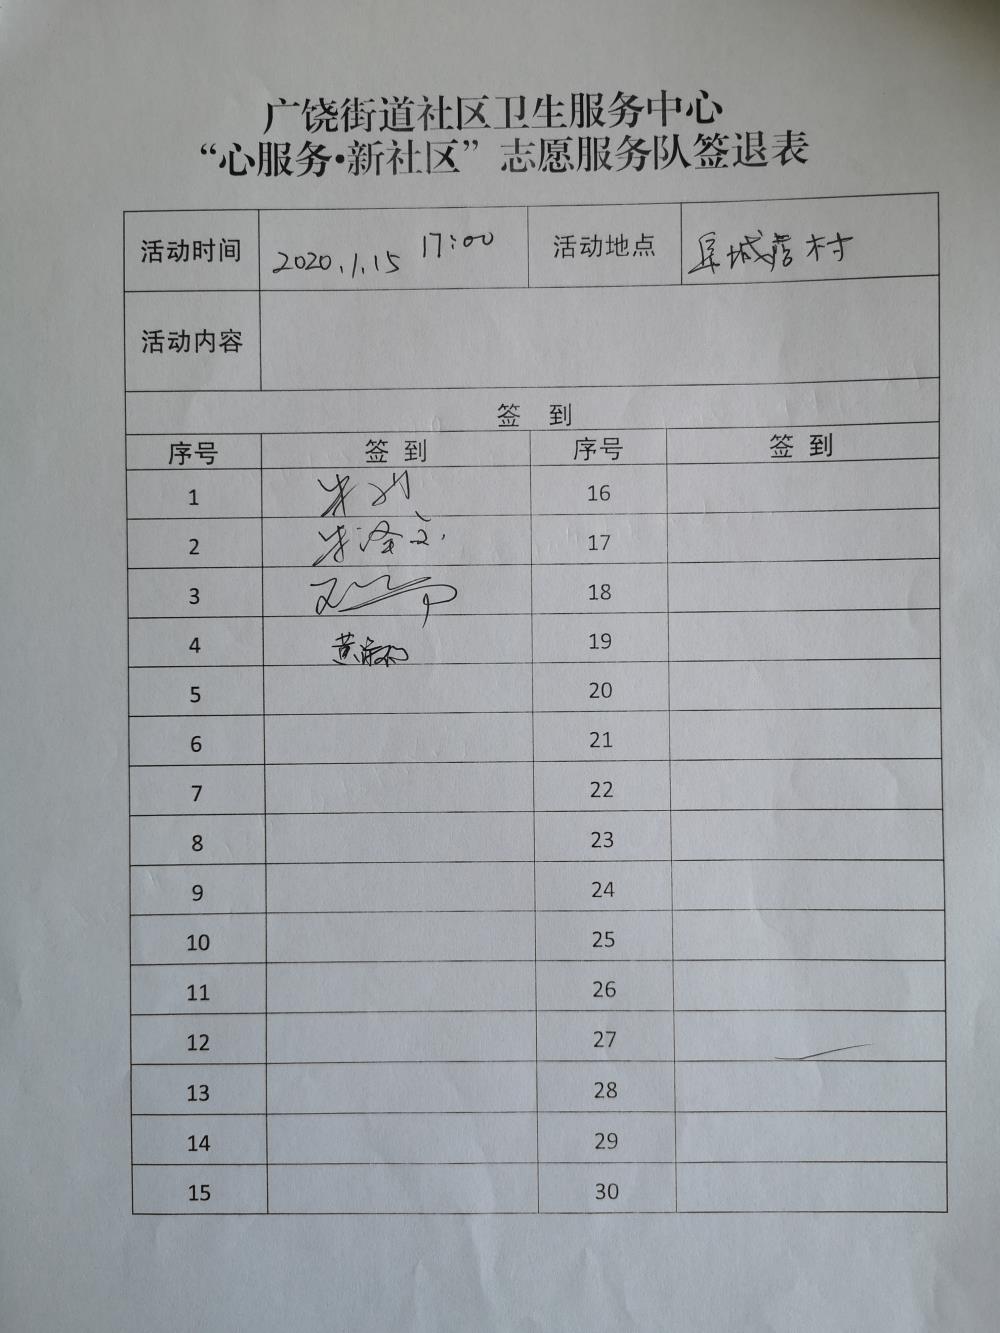 广饶街道社区卫生服务中心
“心服务·新社区”志愿服务队签退表
活动时间 2020.1.15 17:00 活动地点 阜城营村
活动内容
签 到
序号 签 到 序号 签 到
1 16
2 朱 17
3 18
4 黄 19
5 20
6 21
7 22
8 23
9 24
10 25
11 26
12 27
13 28
14 29
15 30